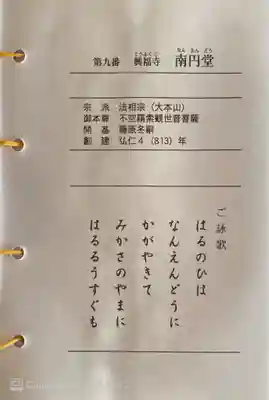 第九番 興福寺 南円堂
こうふくじ なんえんどう
宗派 法相宗（大本山）
御本尊 不空羂索観世音菩薩
開基 藤原冬嗣
創建 弘仁4（813）年
ご詠歌
はるのひは
なんえんどうに
かがやきて
みかさのやまに
はるるうすぐも